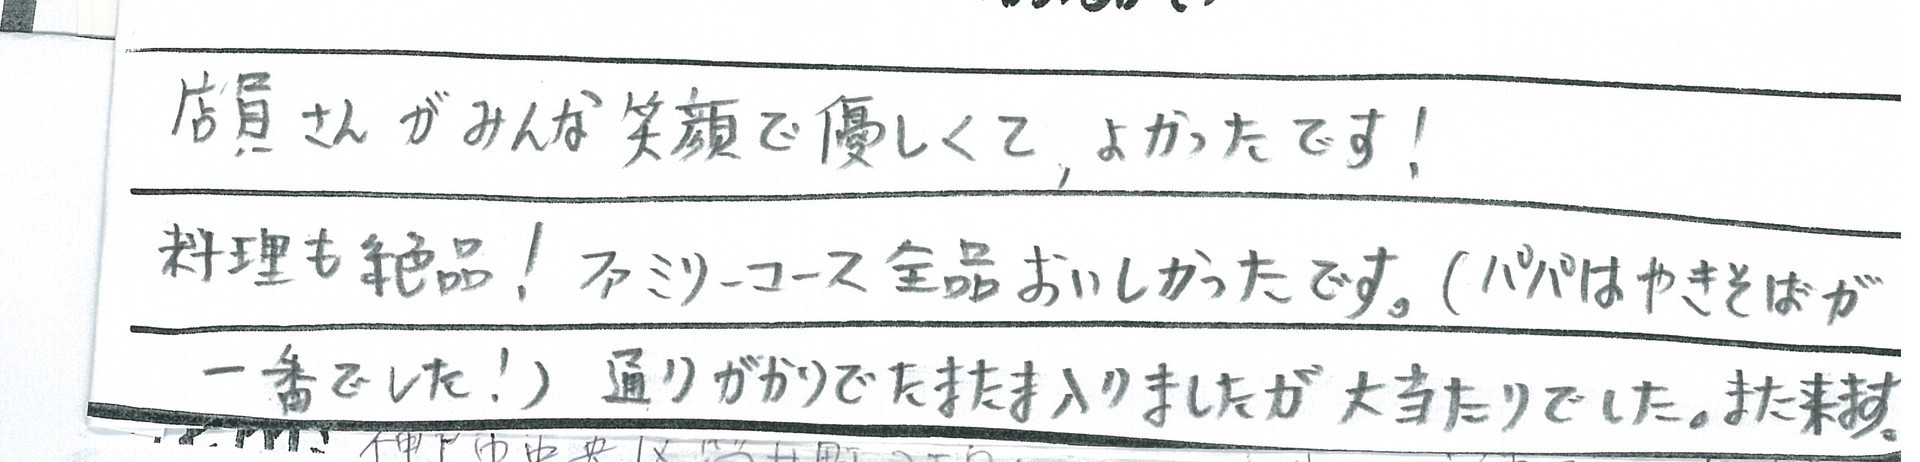 店員さんがみんな笑顔で優しくて,よかったです!
料理も絶品! ファミリーコース全品おいしかったです。(パパはやきそばが
一番でした!) 通りがかりでたまたま入りましたが大当たりでした。また来ます。